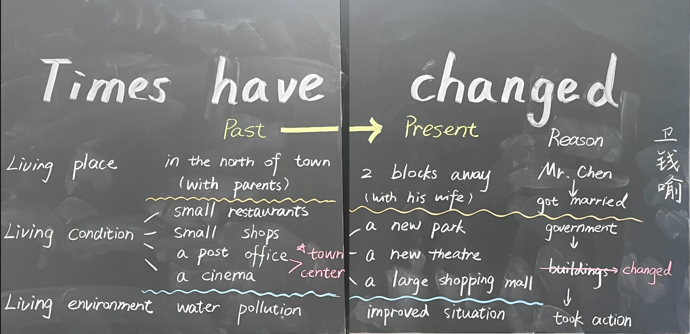 Times have changed
Past → Present
Reason
Living place
in the north of town
(with parents)
2 blocks away
(with his wife)
Mr. Chen
↓
got married
Living condition
small restaurants
small shops
a post office
a cinema
* town
center
a new park
a new theatre
a large shopping mall
government
↓
buildings → changed
↓
took action
Living environment
water pollution
improved situation
卫
钱
喻